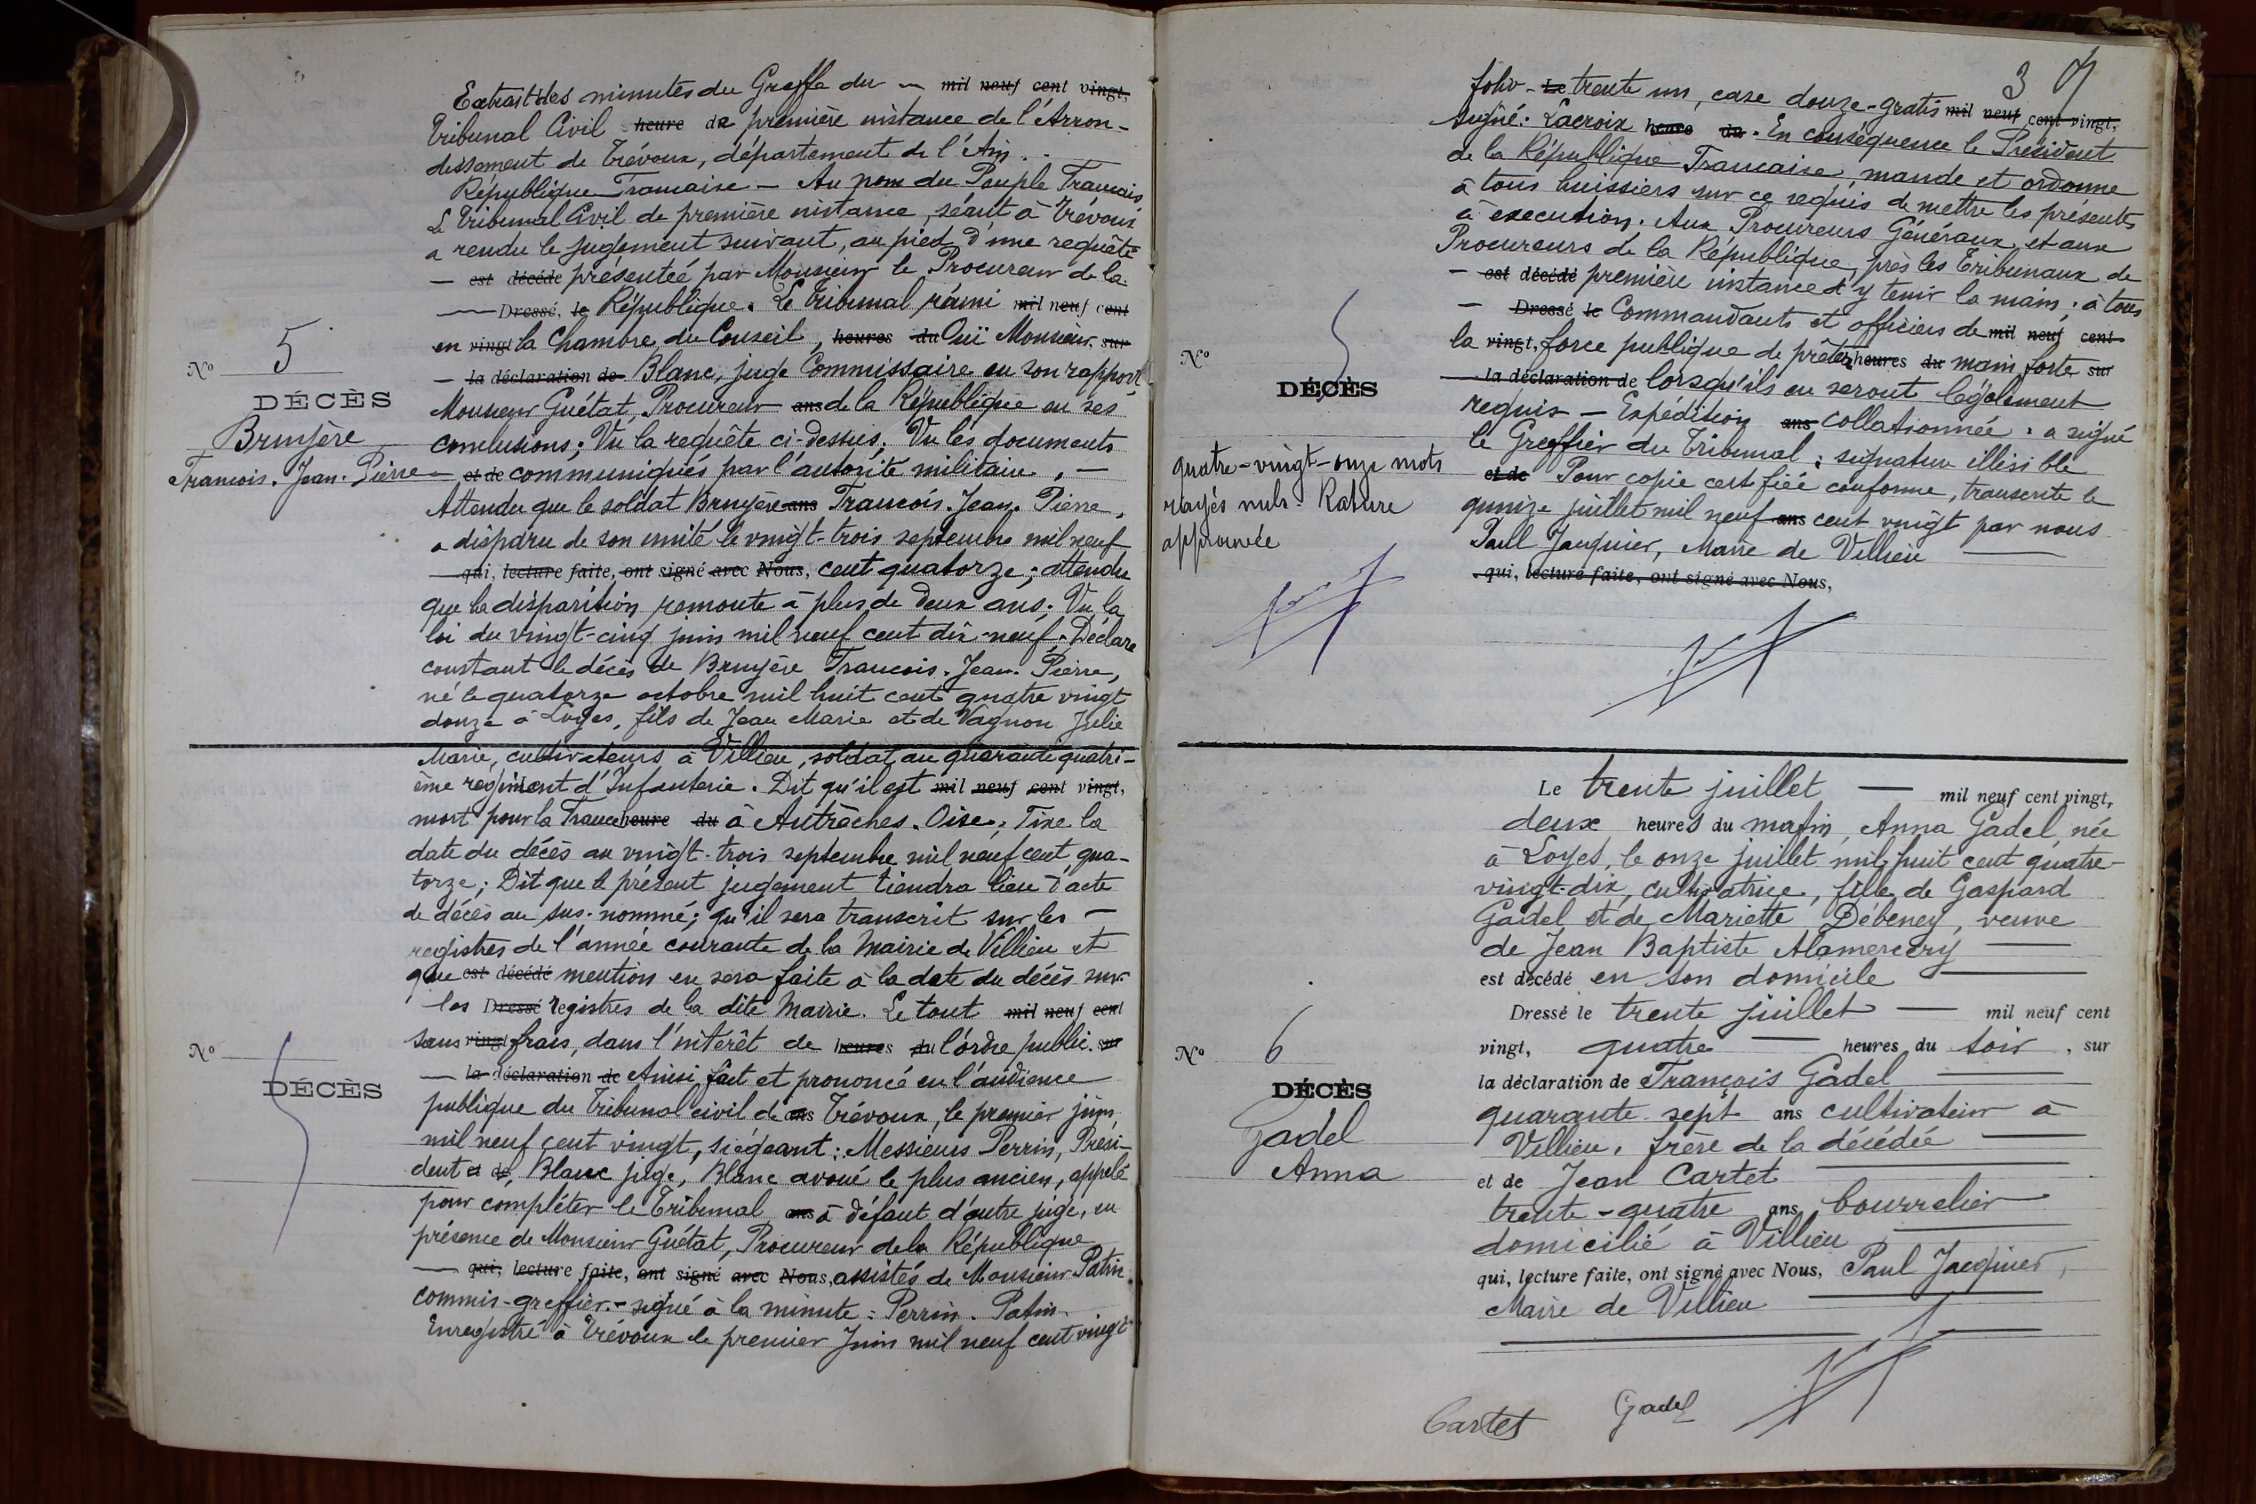 N° 5
DÉCÈS
Bruyère
François. Jean. Pierre
Extrait des minutes du Greffe du — mil neuf cent vingt,
Tribunal Civil heure de première instance de l'Arron-
dissement de Trévoux, département de l'Ain. .
République Francaise — Au nom du Peuple Francais,
Le Tribunal Civil de première instance, séant à Trévoux
a rendu le jugement suivant, au pied d'une requête
— est décédé présentée par Monsieur le Procureur de la
— Dressé, le République. Le Tribunal réuni mil neuf cent
en vingt la Chambre du Conseil, heures du Ouï Monsieur sur
— la déclaration de Blanc, juge Commissaire en son rapport
Monsieur Guétat, Procureur ans de la République en ses
conclusions; Vu la requête ci-dessus. Vu les documents
— et de communiqués par l'autorité militaire. —
Attendu que le soldat Bruyère ans Francois. Jean. Pierre,
a disparu de son unité le vingt-trois septembre mil neuf
— qui, lecture faite, ont signé avec Nous, cent quatorze; attendu
que la disparition remonte à plus de deux ans. Vu la
loi du vingt-cinq juin mil neuf cent dix-neuf. Déclare
constant le décès de Bruyère Francois. Jean. Pierre,
né le quatorze octobre mil huit cent quatre vingt
douze à Loyes, fils de Jean Marie et de Vagnon Julie
Marie, cultivateurs à Villieu, soldat au quarante quatri-
ème regiment d'Infanterie. Dit qu'il est mil neuf cent vingt,
mort pour la France heure du à Autrèches. Oise; Fixe la
date du décès au vingt-trois septembre mil neuf cent qua-
torze; Dit que le présent jugement tiendra lieu d'acte
de décès au sus-nommé; qu'il sera transcrit sur les —
registres de l'année courante de la Mairie de Villieu et
que est décédé mention en sera faite à la date du décès sur
les Dressé registres de la dite Mairie. Le tout mil neuf cent
sans vingt frais, dans l'intérêt de heures du l'ordre public. sur
— la déclaration de Ainsi fait et prononcé en l'audience
publique du Tribunal civil de ans Trévoux, le premier juin
mil neuf cent vingt, siégeant: Messieurs Perrin, Prési-
dent et de, Blanc juge, Blanc avoué le plus ancien, appelé
pour compléter le Tribunal ans à défaut d'autre juge, en
présence de Monsieur Guétat, Procureur de la République
— qui, lecture faite, ont signé avec Nous, assistés de Monsieur Patin
commis-greffier. — signé à la minute: Perrin. Patin.
Enregistré à Trévoux le premier Juin mil neuf cent vingt
N°
DÉCÈS
3
folio — Le trente un, case douze-gratis mil neuf cent vingt,
signé: Lacroix heure du. En conséquence le Président
de la République Francaise, mande et ordonne
à tous huissiers sur ce requis de mettre les présentes
à execution. Aux Procureurs Généraux et aux
Procureurs de la République, près les Tribunaux de
— est décédé première instance d'y tenir la main; à tous
— Dressé le Commandants et officiers de mil neuf cent
la vingt, force publique de prêter heures du main forte sur
— la déclaration de lorsqu'ils en seront légalement
requis — Expédition ans collationnée. a signé
le Greffier du Tribunal; signature illisible
et de Pour copie certifiée conforme, transcrite le
quinze juillet mil neuf ans cent vingt par nous
Paul Jacquier, Maire de Villieu —
qui, lecture faite, ont signé avec Nous,
N°
DÉCÈS
quatre-vingt-onze mots
rayés nuls. Rature
approuvée
N° 6
DÉCÈS
Gadel
Anna
Le trente juillet — mil neuf cent vingt,
deux heures du matin, Anna Gadel, née
à Loyes, le onze juillet mil huit cent quatre-
vingt-dix, cultivatrice, fille de Gaspard
Gadel et de Mariette Débeney, veuve
de Jean Baptiste Alamercery —
est décédé en son domicile —
Dressé le trente juillet — mil neuf cent
vingt, quatre — heures du soir, sur
la déclaration de François Gadel —
quarante sept ans cultivateur à
Villieu, frère de la décédée —
et de Jean Cartet —
trente-quatre ans, bourrelier
domicilié à Villieu —
qui, lecture faite, ont signé avec Nous, Paul Jacquier,
Maire de Villieu —
Cartet Gadel